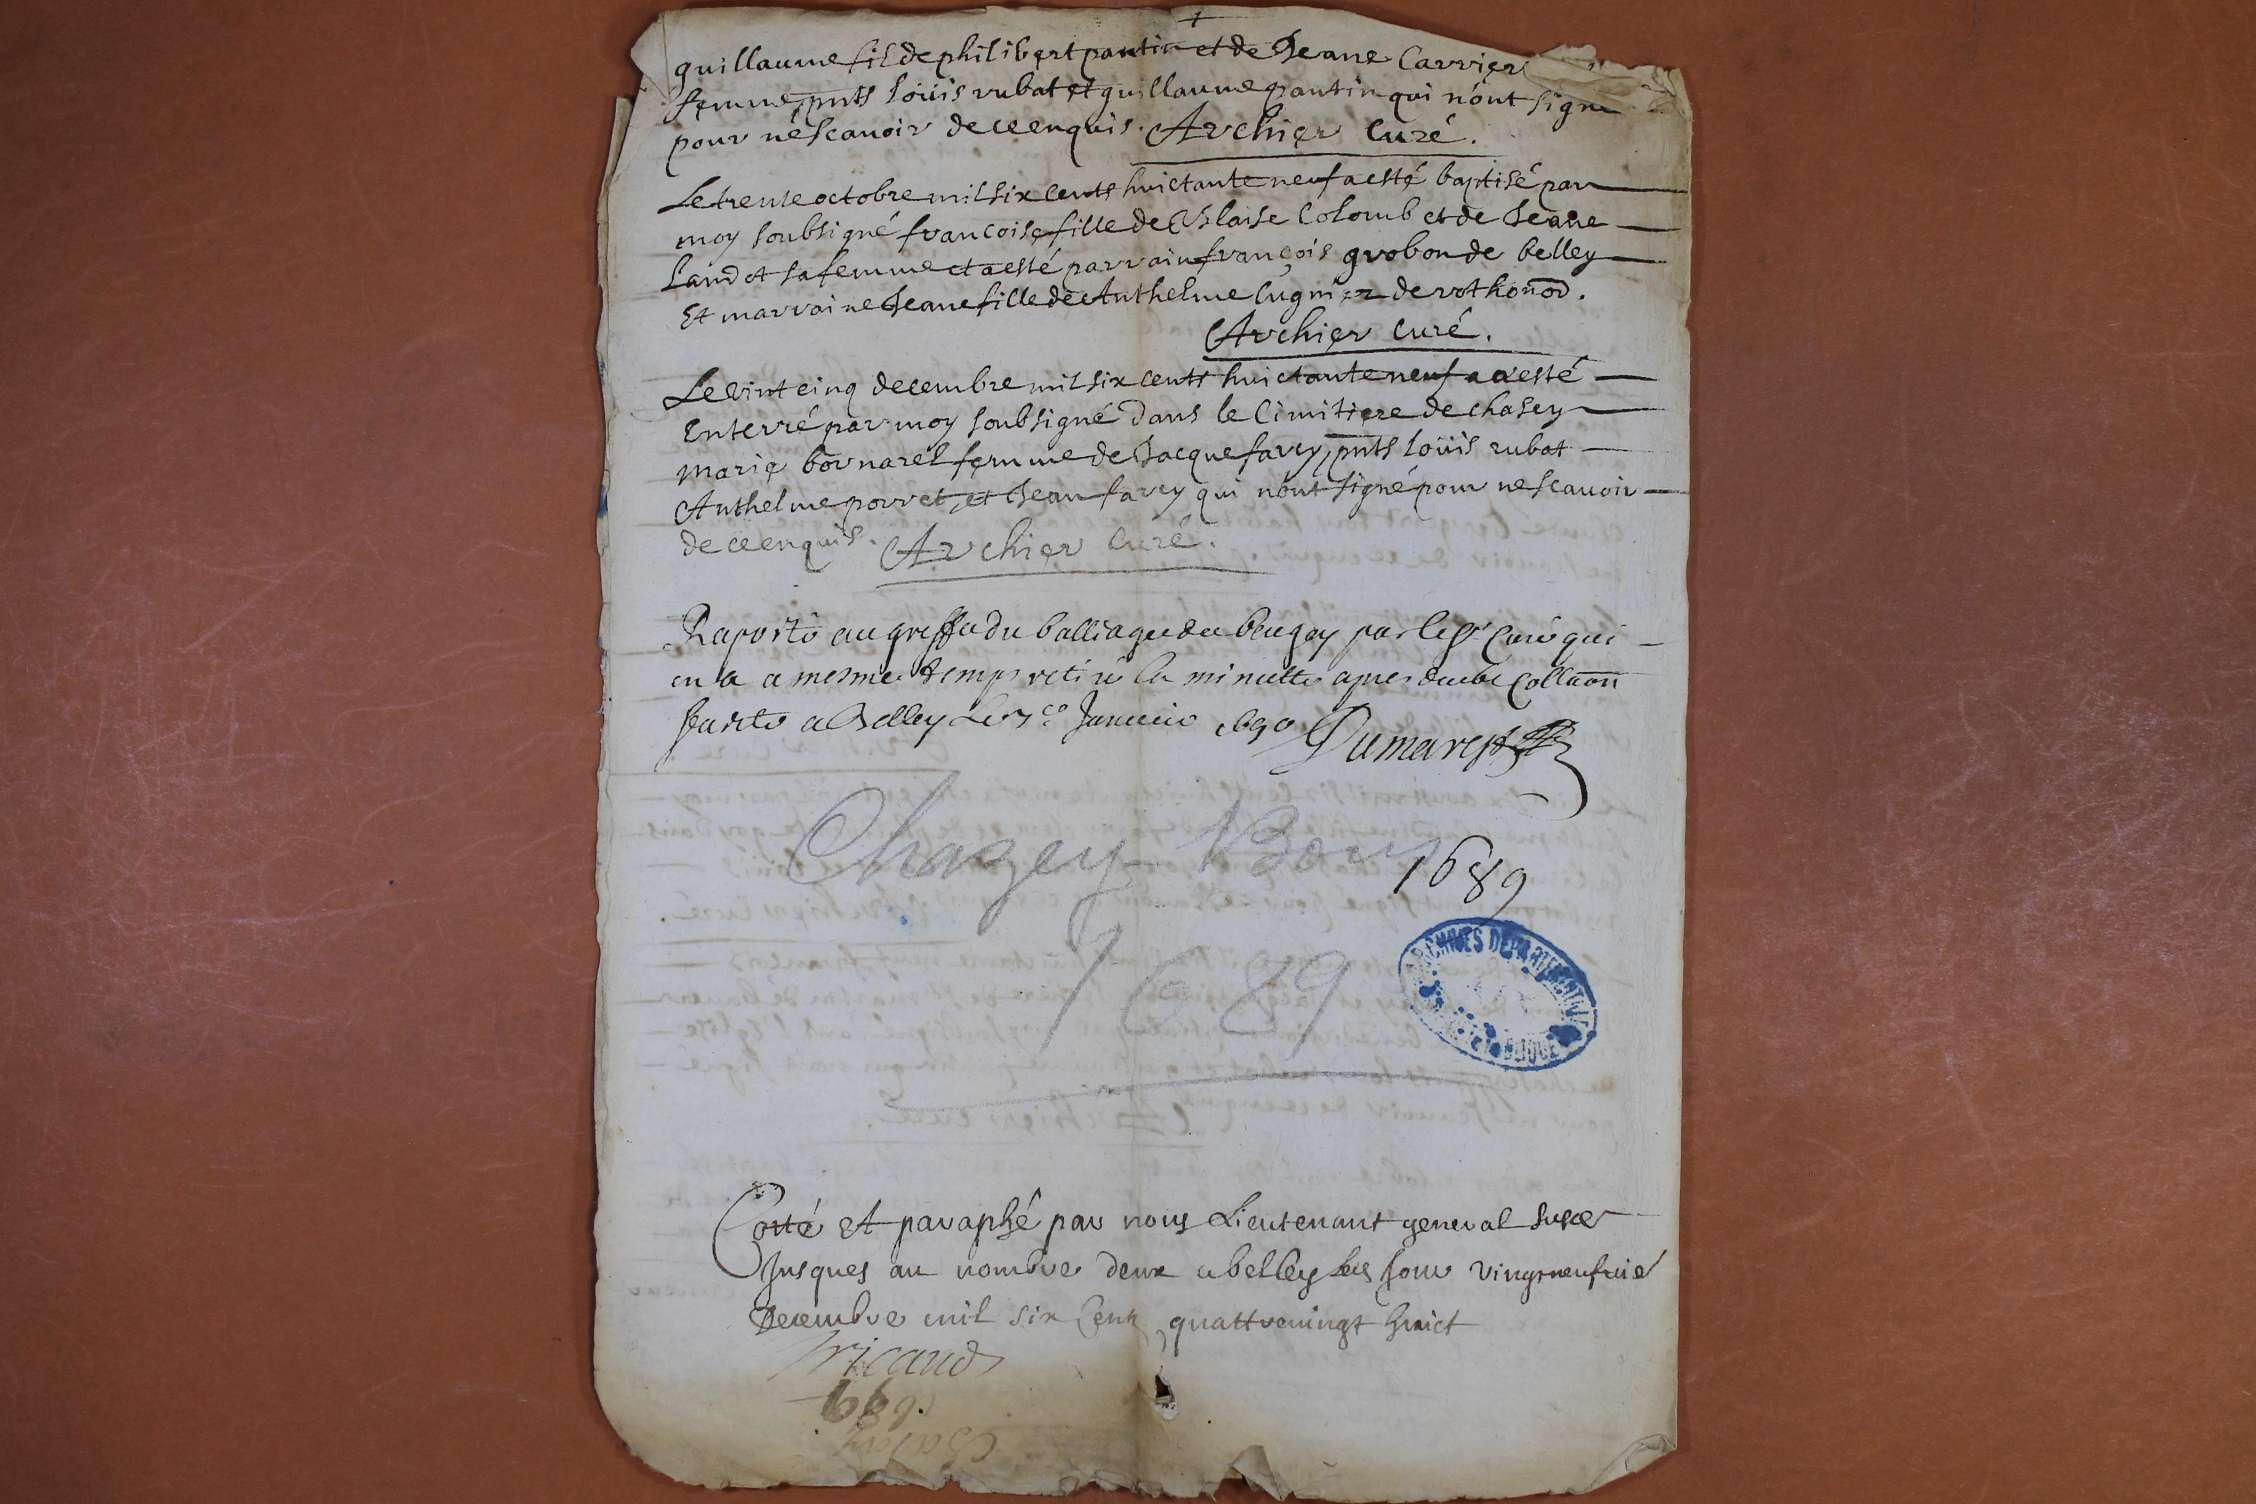 guillaume fil de philibert pantin et de Jeane Carrier
femme, pnts loüis rubat et guillaume pantin qui nónt signe
pour né scavoir de ce enquis. Archier Curé.
Le trente octobre mil six cents huictante neuf a esté baptisé par
moy soubsigné francoise fille de Blaise Colomb et de Jeane
Landot sa femme et a esté parrain françois grobon de belley
Et marraine Jeane fille de Anthelme Cugnier de rothonod.
Archier Curé.
Le vint cinq decembre mil six cents huictante neuf a esté
Enterré par moy soubsigné dans le Cimitiere de chasey
marie bornarel femme de Jacque farcy, pnts loüis rubat
Anthelme porret, et Jean farcy qui nónt signé pour ne scavoir
de ce enquis. Archier Curé.
Raporté au greffe du balliage de beugey par le sr Curé qui
en a a mesme temps retiré la minutte apres deube Collaon
faicte a Belley Le Janvier 1690 Dumarest
Chazey Bons
1689
1689
ARCHIVES DEPARTEMENTALES
Cotté et paraphé par nous Lieutenant general
Jusques au nombre deux a belley ce Jour vingtneufvié
Decembre mil six Cent quattrevingt huict
Tricaud
1689.
Chasey